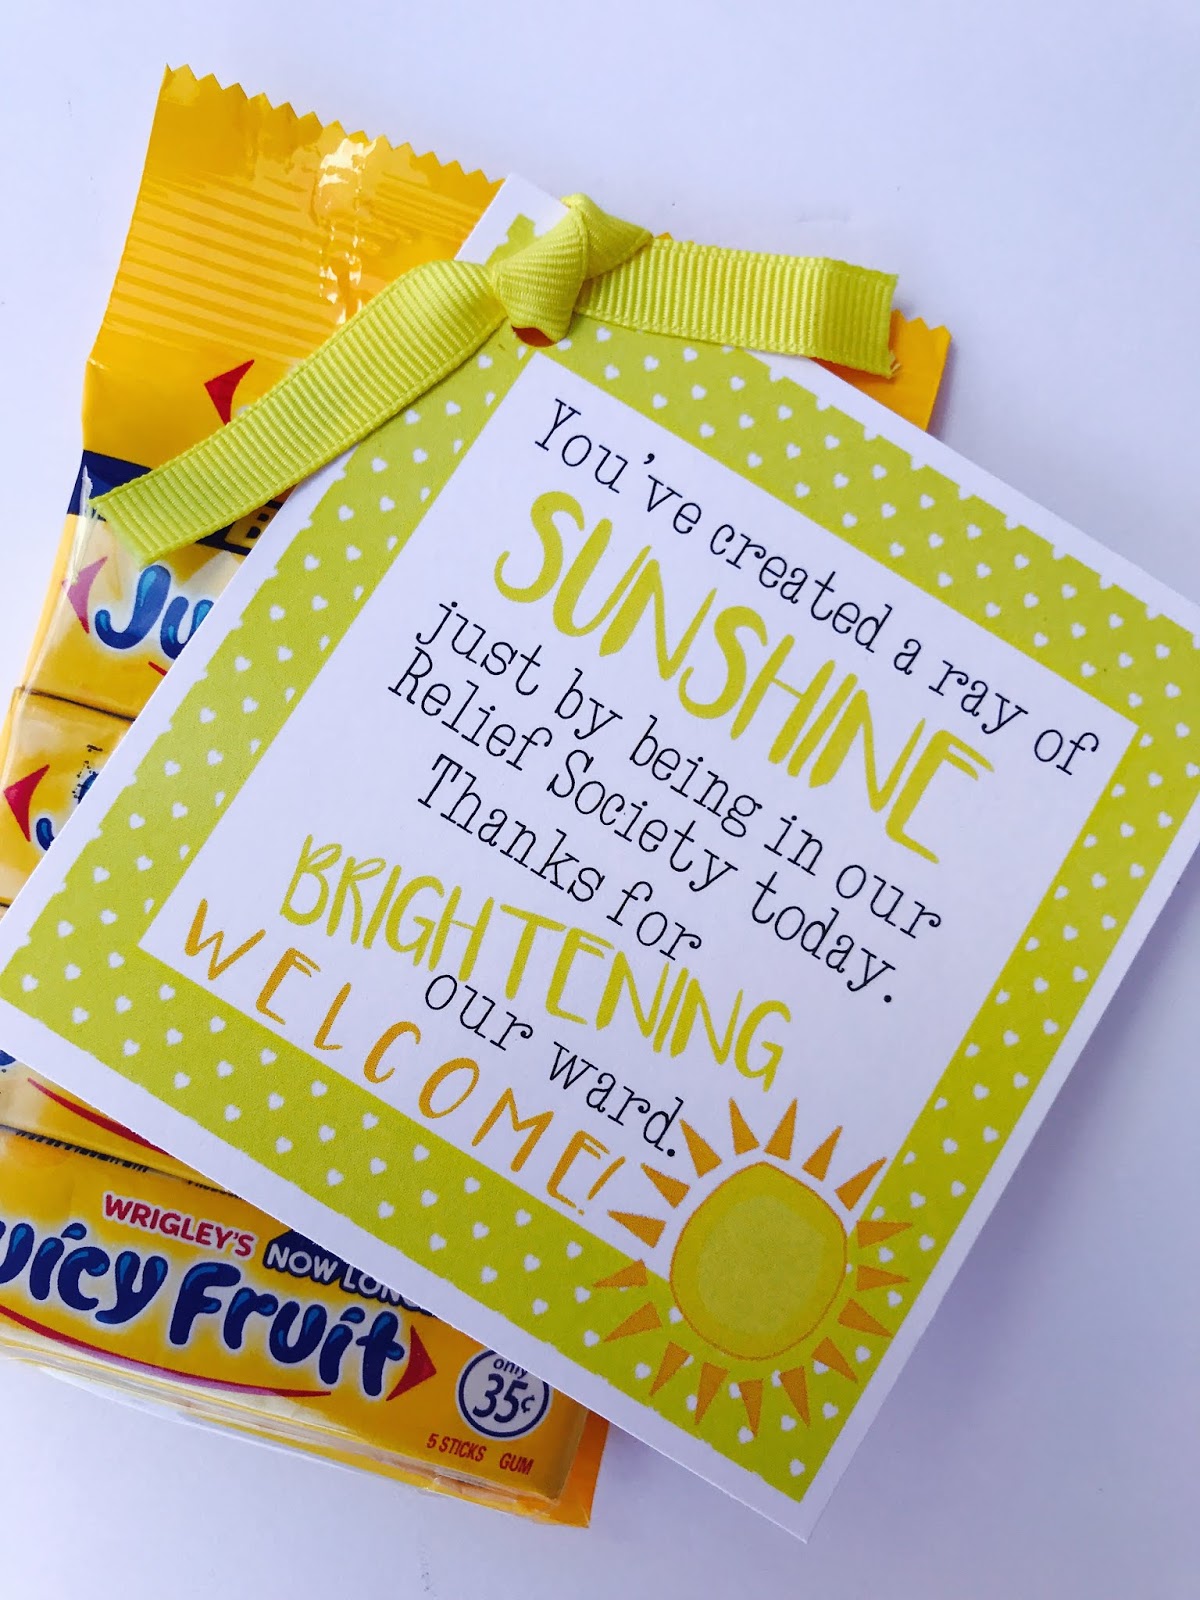 You've created a ray of
SUNSHINE
just by being in our
Relief Society today.
Thanks for
BRIGHTENING
our ward.
WELCOME!
WRIGLEY'S
NOW
Juicy Fruit
only
35¢
5 STICKS GUM